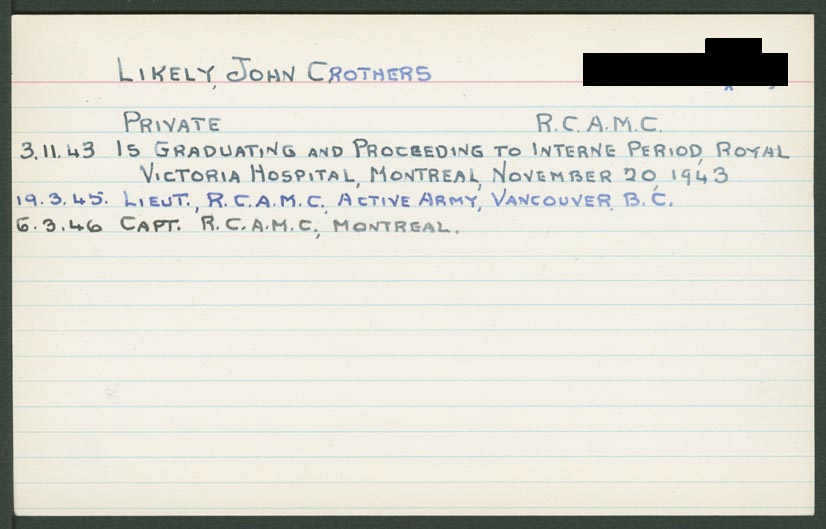 LIKELY, JOHN CROTHERS
PRIVATE R.C.A.M.C.
3.11.43 IS GRADUATING AND PROCEEDING TO INTERNE PERIOD, ROYAL
VICTORIA HOSPITAL, MONTREAL, NOVEMBER 20, 1943
19.3.45. LIEUT., R.C.A.M.C. ACTIVE ARMY, VANCOUVER, B.C.
6.3.46 CAPT. R.C.A.M.C., MONTREAL.